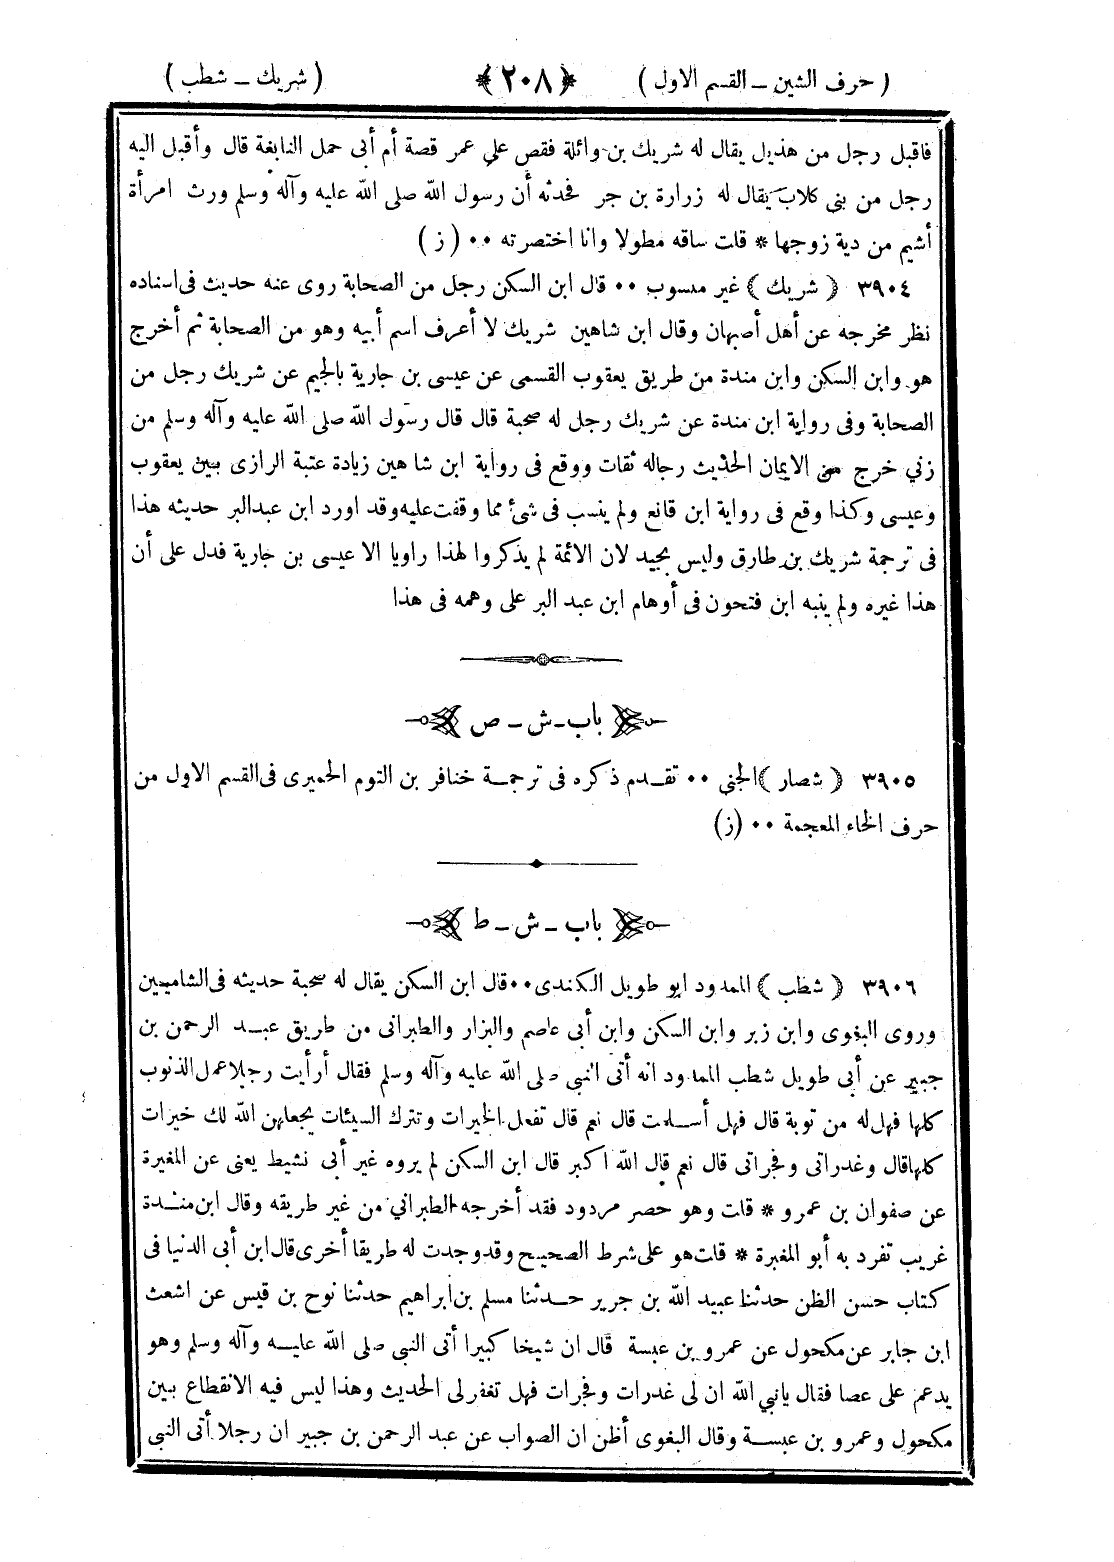 ( حرف الشين – القسم الاول ) ﴿ ٢٠٨ ﴾ ( شريك – شطب )
فاقبل رجل من هذيل يقال له شريك بن وائلة فقص على عمر قصة أم أبى حمل النابغة قال وأقبل اليه
رجل من بنى كلاب يقال له زرارة بن جر فحدثه أن رسول الله صلى الله عليه وآله وسلم ورث امرأة
أشيم من دية زوجها * قلت ساقه مطولا وانا اختصرته ٠٠ ( ز )
٣٩٠٤ ﴿ شريك ﴾ غير منسوب ٠٠ قال ابن السكن رجل من الصحابة روى عنه حديث فى اسناده
نظر مخرجه عن أهل أصبهان وقال ابن شاهين شريك لا أعرف اسم أبيه وهو من الصحابة ثم أخرج
هو وابن السكن وابن مندة من طريق يعقوب القسمى عن عيسى بن جارية بالجيم عن شريك رجل من
الصحابة وفى رواية ابن مندة عن شريك رجل له صحبة قال قال رسول الله صلى الله عليه وآله وسلم من
زني خرج من الايمان الحديث رجاله ثقات ووقع فى رواية ابن شاهين زيادة عتبة الرازى بين يعقوب
وعيسى وكذا وقع فى رواية ابن قانع ولم ينسب فى شئ مما وقفت عليه وقد اورد ابن عبدالبر حديثه هذا
فى ترجمة شريك بن طارق وليس بجيد لان الائمة لم يذكروا لهذا راويا الا عيسى بن جارية فدل على أن
هذا غيره ولم ينبه ابن فتحون فى أوهام ابن عبد البر على وهمه فى هذا
باب – ش – ص
٣٩٠٥ ﴿ شصار ﴾ الجنى ٠٠ تقدم ذكره فى ترجمة خنافر بن التوم الحميرى فى القسم الاول من
حرف الخاء المعجمة ٠٠ (ز)
باب – ش – ط
٣٩٠٦ ﴿ شطب ﴾ الممدود ابو طويل الكندى ٠٠ قال ابن السكن يقال له صحبة حديثه فى الشاميين
وروى البغوى وابن زبر وابن السكن وابن أبى عاصم والبزار والطبرانى من طريق عبد الرحمن بن
جبير عن أبى طويل شطب الممدود انه أتى النبى صلى الله عليه وآله وسلم فقال أرأيت رجلا عمل الذنوب
كلها فهل له من توبة قال فهل أسلمت قال نعم قال تفعل الخيرات وتترك السيئات يجعلهن الله لك خيرات
كلها قال وغدراتى وفجراتى قال نعم قال الله اكبر قال ابن السكن لم يروه غير أبى نشيط يعنى عن المغيرة
عن صفوان بن عمرو * قلت وهو حصر مردود فقد أخرجه الطبراني من غير طريقه وقال ابن مندة
غريب تفرد به أبو المغيرة * قلت هو على شرط الصحيح وقد وجدت له طريقا أخرى قال ابن أبى الدنيا فى
كتاب حسن الظن حدثنا عبيد الله بن جرير حدثنا مسلم بن ابراهيم حدثنا نوح بن قيس عن اشعث
ابن جابر عن مكحول عن عمرو بن عبسة قال ان شيخا كبيرا أتى النبى صلى الله عليه وآله وسلم وهو
يدعم على عصا فقال يانبي الله ان لى غدرات وفجرات فهل تغفر لى الحديث وهذا ليس فيه الانقطاع بين
مكحول وعمرو بن عبسة وقال البغوى أظن ان الصواب عن عبد الرحمن بن جبير ان رجلا أتى النبي